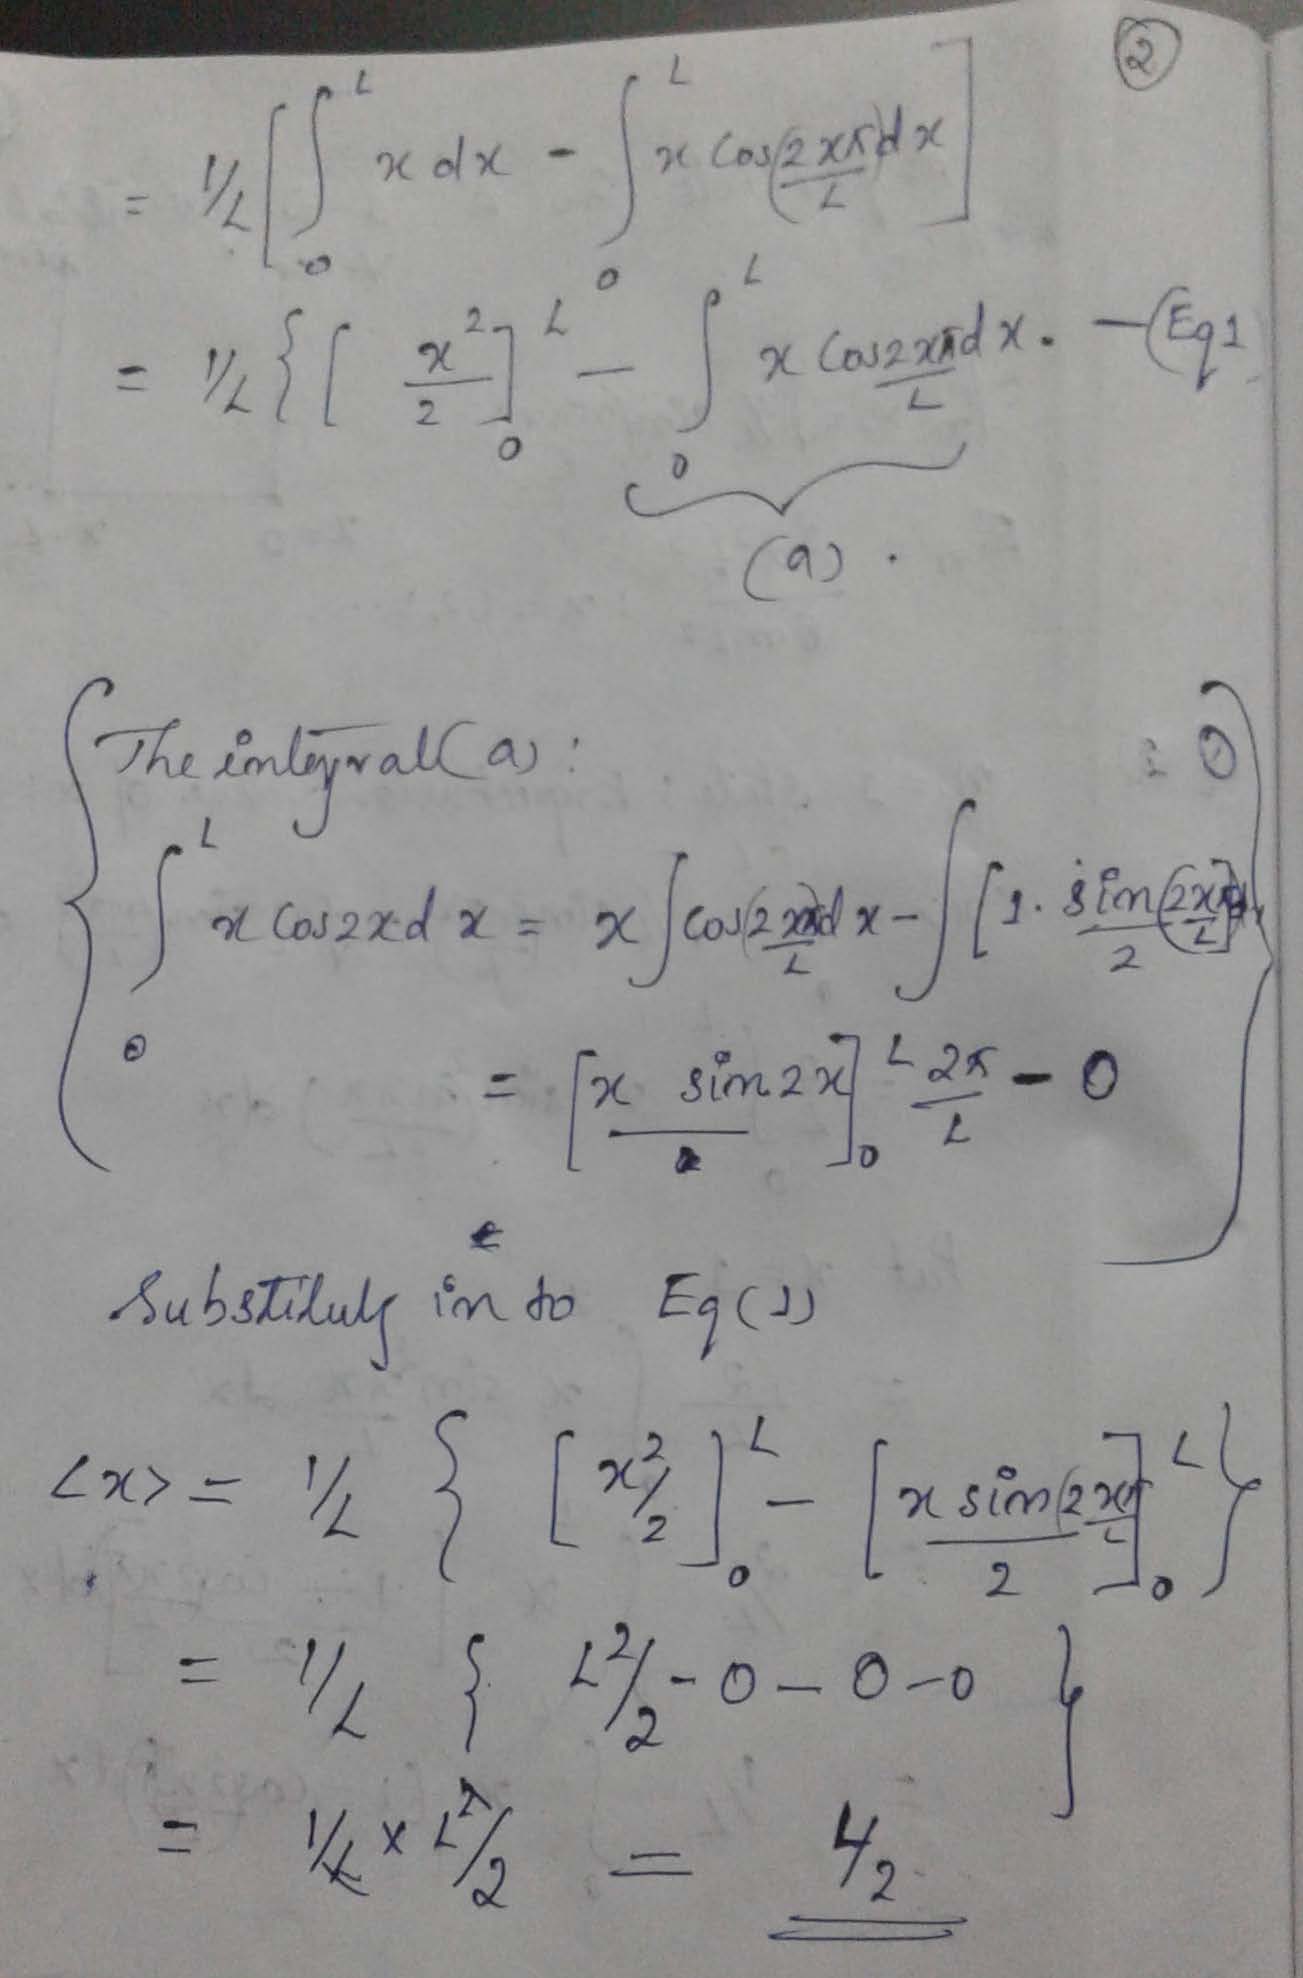 2
= 1/L [ ∫₀ᴸ x dx - ∫₀ᴸ x Cos(2xπ/L) dx ]
= 1/L { [ x²/2 ]₀ᴸ - ∫₀ᴸ x Cos 2xπ/L dx. - (Eq1
(a).
The integral (a) :
∫₀ᴸ x Cos2x d x = x ∫ cos(2xπ/L) d x - ∫ [1. sin(2xπ/L)/2]
= [x sin2x]₀ᴸ 2π/L - 0
Substituty in to Eq(1)
<x> = 1/L { [x²/2]₀ᴸ - [x sin(2xπ/L)/2]₀ᴸ }
= 1/L { L²/2 - 0 - 0 - 0 }
= 1/L × L²/2 = L/2